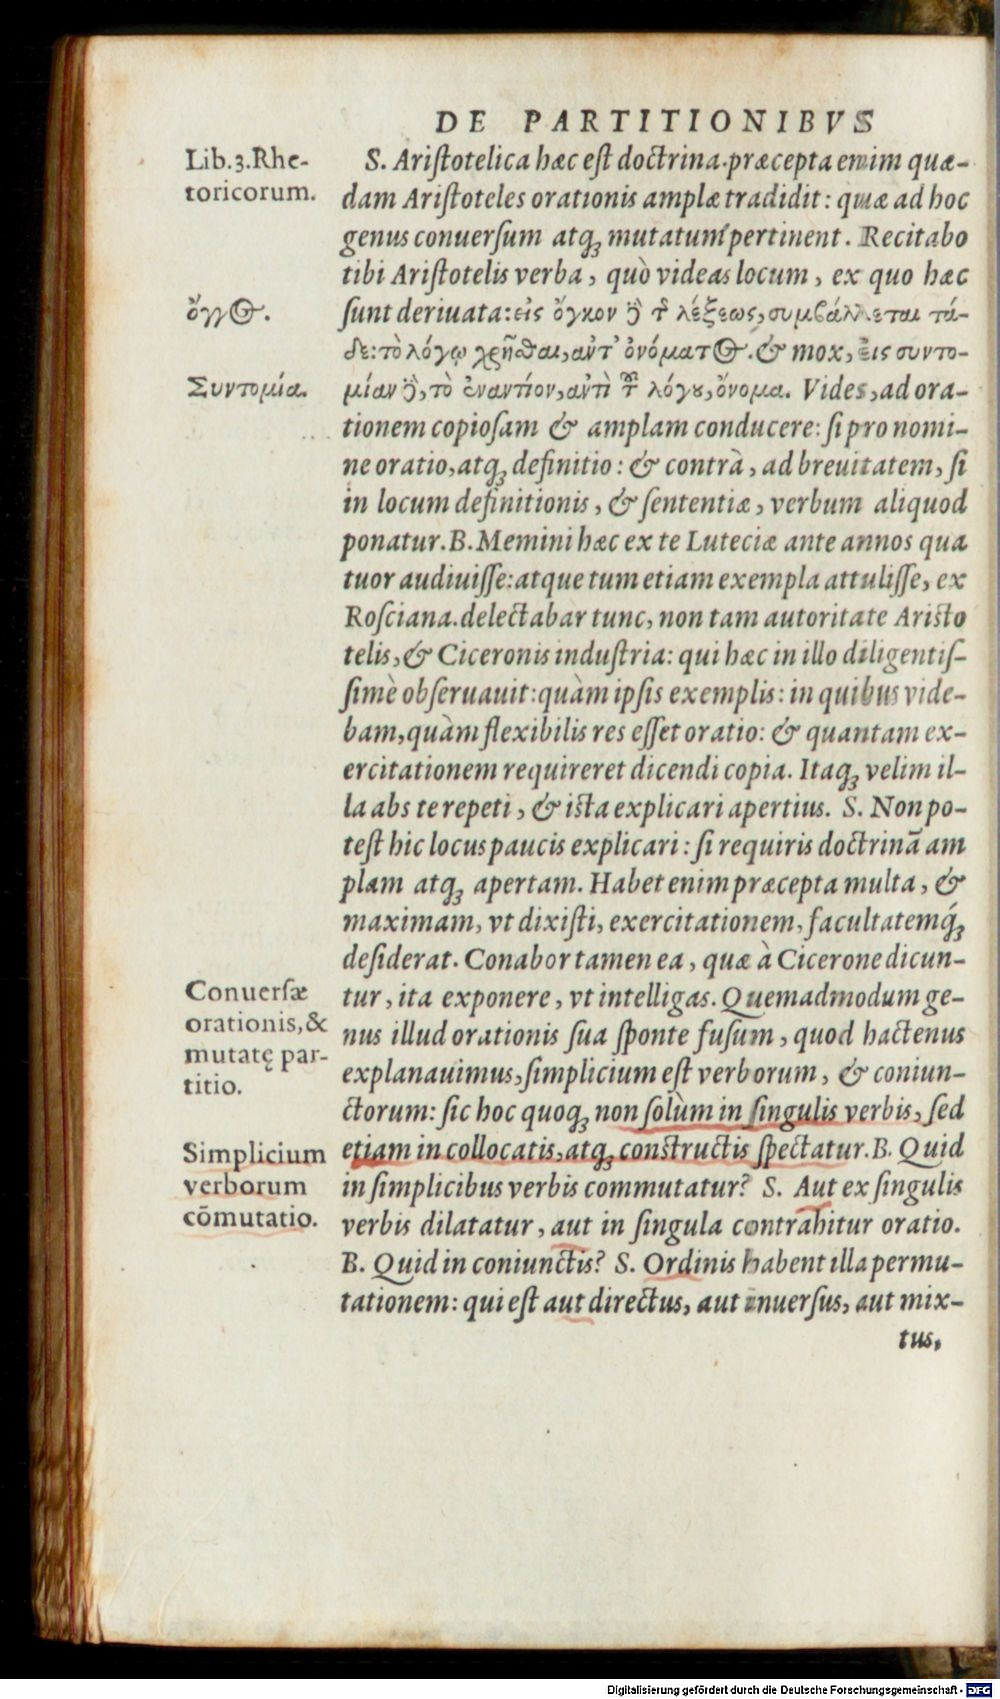 DE PARTITIONIBVS
Lib.3.Rhe-
toricorum.
S. Aristotelica hæc est doctrina. præcepta enim quæ-
dam Aristoteles orationis amplæ tradidit: quæ ad hoc
genus conuersum atq; mutatum pertinent. Recitabo
tibi Aristotelis verba, quò videas locum, ex quo hæc
ὄγγος.
sunt deriuata: εἰς ὄγκον δὲ τῆς λέξεως, συμβάλλεται τά-
δε: τὸ λόγῳ χρῆσθαι, ἀντ' ὀνόματος. & mox, εἰς συντο-
Συντομία.
μίαν δὲ, τὸ ἐναντίον, ἀντὶ τοῦ λόγου, ὄνομα. Vides, ad ora-
tionem copiosam & amplam conducere: si pro nomi-
ne oratio, atq; definitio: & contrà, ad breuitatem, si
in locum definitionis, & sententiæ, verbum aliquod
ponatur. B. Memini hæc ex te Luteciæ ante annos qua
tuor audiuisse: atque tum etiam exempla attulisse, ex
Rosciana. delectabar tunc, non tam autoritate Aristo
telis, & Ciceronis industria: qui hæc in illo diligentis-
simè obseruauit: quàm ipsis exemplis: in quibus vide-
bam, quàm flexibilis res esset oratio: & quantam ex-
ercitationem requireret dicendi copia. Itaq; velim il-
la abs te repeti, & ista explicari apertius. S. Non po-
test hic locus paucis explicari: si requiris doctrinã am
plam atq; apertam. Habet enim præcepta multa, &
maximam, vt dixisti, exercitationem, facultatemq́;
desiderat. Conabor tamen ea, quæ à Cicerone dicun-
Conuersæ
orationis, &
mutatę par-
titio.
tur, ita exponere, vt intelligas. Quemadmodum ge-
nus illud orationis sua sponte fusum, quod hactenus
explanauimus, simplicium est verborum, & coniun-
ctorum: sic hoc quoq; non solùm in singulis verbis, sed
Simplicium
verborum
cõmutatio.
etiam in collocatis, atq; constructis spectatur. B. Quid
in simplicibus verbis commutatur? S. Aut ex singulis
verbis dilatatur, aut in singula contrahitur oratio.
B. Quid in coniunctis? S. Ordinis habent illa permu-
tationem: qui est aut directus, aut inuersus, aut mix-
tus,
Digitalisierung gefördert durch die Deutsche Forschungsgemeinschaft - DFG